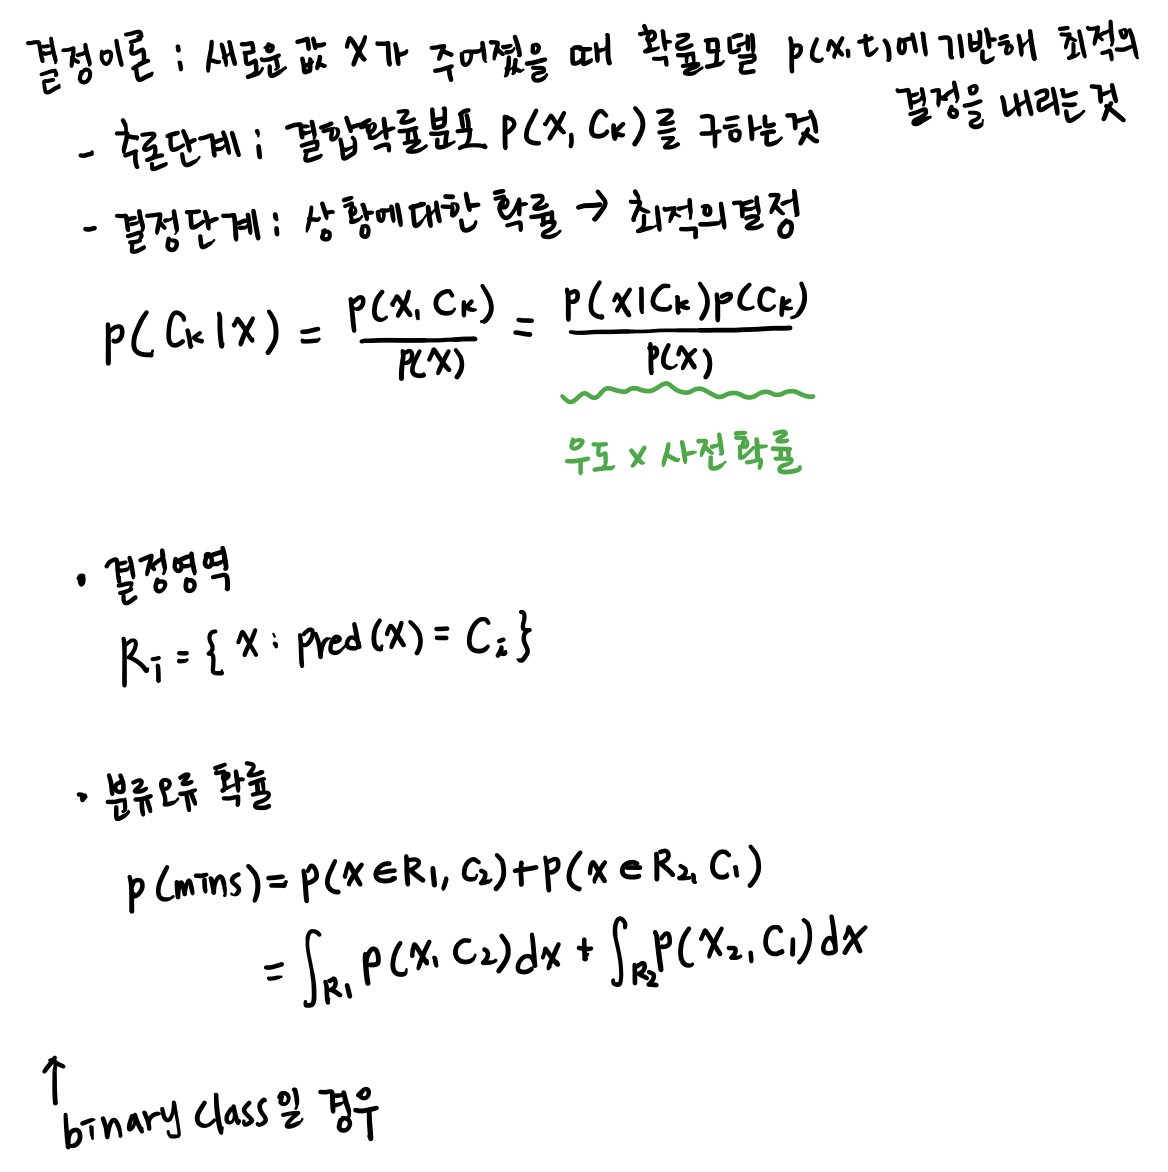 결정이론 : 새로운 값 x가 주어졌을 때 확률모델 p(x,t)에 기반해 최적의
결정을 내리는 것
- 추론단계 ; 결합확률분포 p(x, Ck)를 구하는 것
- 결정단계 ; 상황에 대한 확률 → 최적의 결정
p(Ck|x) = p(x, Ck) / p(x) = p(x|Ck)p(Ck) / p(x)
우도 x 사전확률
• 결정영역
Ri = { x : pred(x) = Ci }
• 분류오류 확률
p(mins) = p(x∈R1, C2) + p(x∈R2, C1)
= ∫R1 p(x, C2)dx + ∫R2 p(x2, C1)dx
↑
binary class일 경우